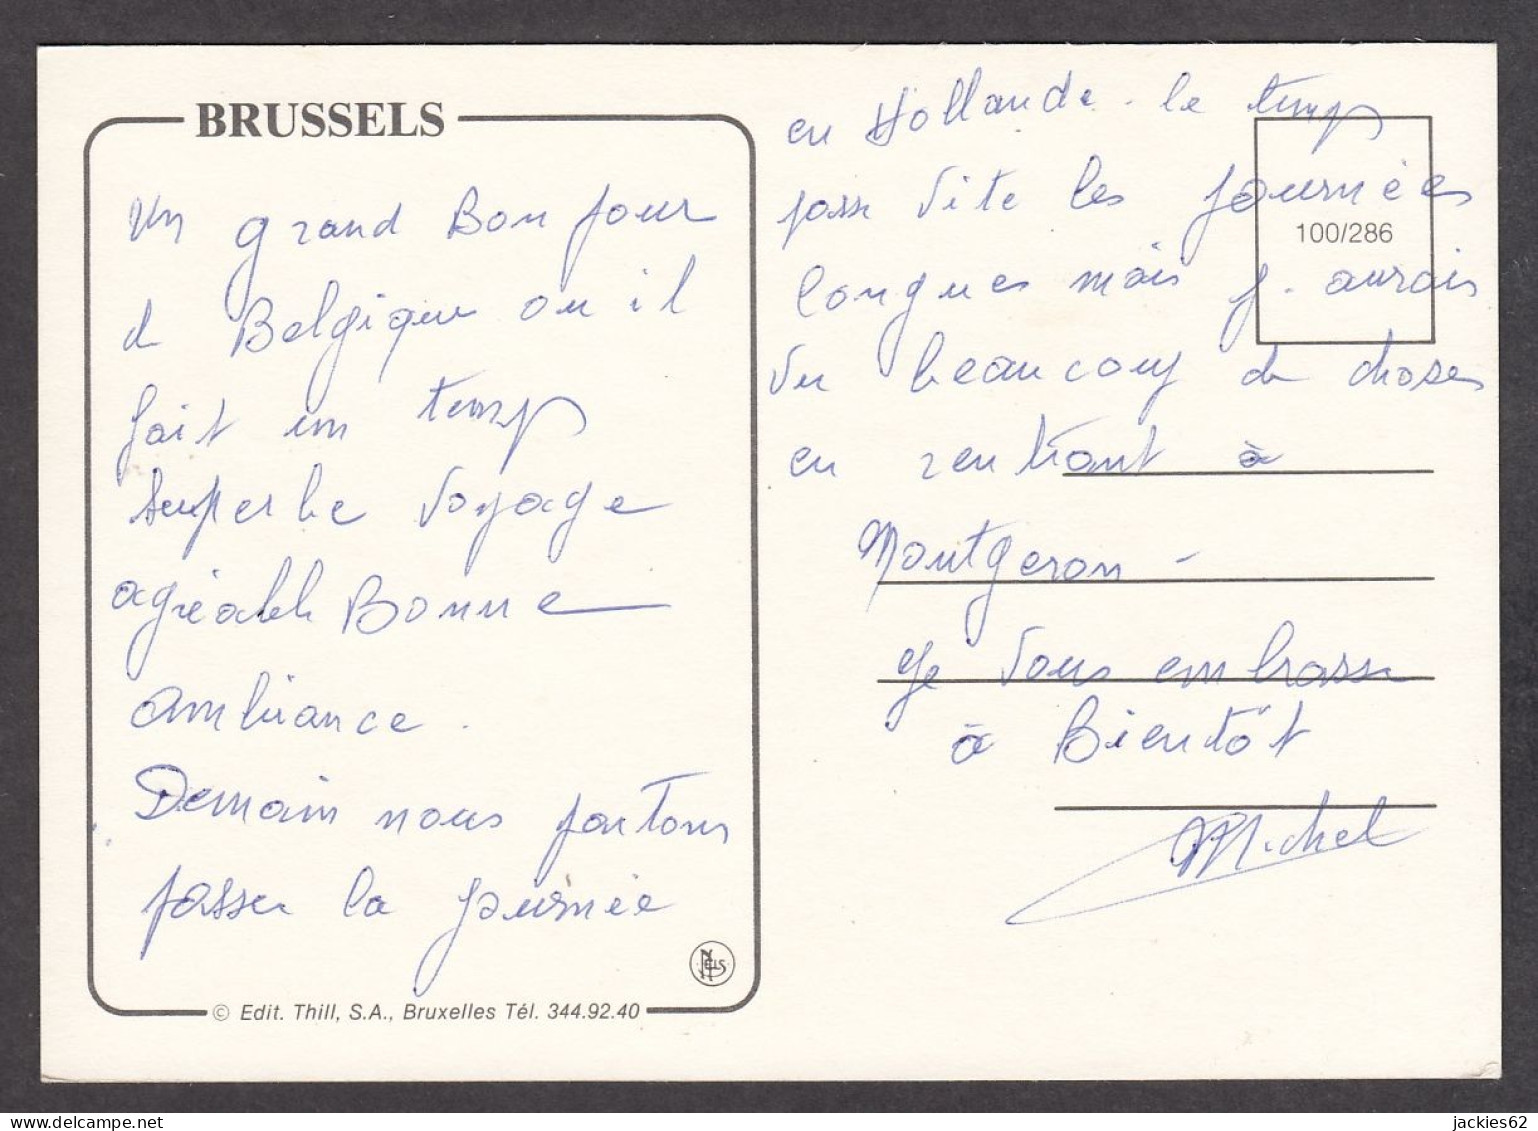 BRUSSELS
Un grand Bonjour
de Belgique ou il
fait un temps
superbe Voyage
agréable Bonne
ambiance.
Demain nous partons
passer la journée
© Edit. Thill, S.A., Bruxelles Tél. 344.92.40
NELS
en Hollande. le temps
passe vite les journées
100/286
longues mais j. aurais
vu beaucoup de choses
en rentrant à
Montgeron -
Je vous embrasse
à Bientôt
Michel
jackies62